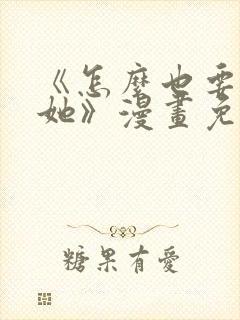 《怎麼也要
她》漫畫免
糖果有愛